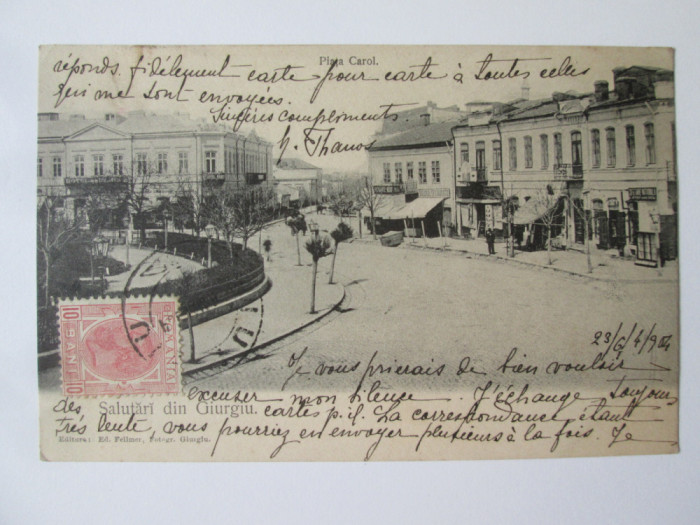 réponds fidèlement carte pour carte à toutes celles
Piața Carol.
qui me sont envoyées.
Sincères compliments.
h. Thanos
10
BANI
10
ROMANIA
23/6/4/904
Je vous prierais de bien vouloir
excuser mon silence. J'échange toujours
Salutări din Giurgiu.
des cartes p. il. La correspondance étant
très lente, vous pourriez en envoyer plusieurs à la fois. Je
Editura: Ed. Fellner, Fotogr. Giurgiu.